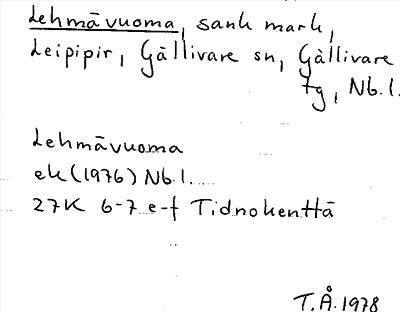 Lehmävuoma, sank mark,
Leipipir, Gällivare sn, Gällivare
tg, Nb.l.
Lehmävuoma
ek (1976) Nb.l.
27K 6-7 e-f Tidnokenttä
T.Å. 1978